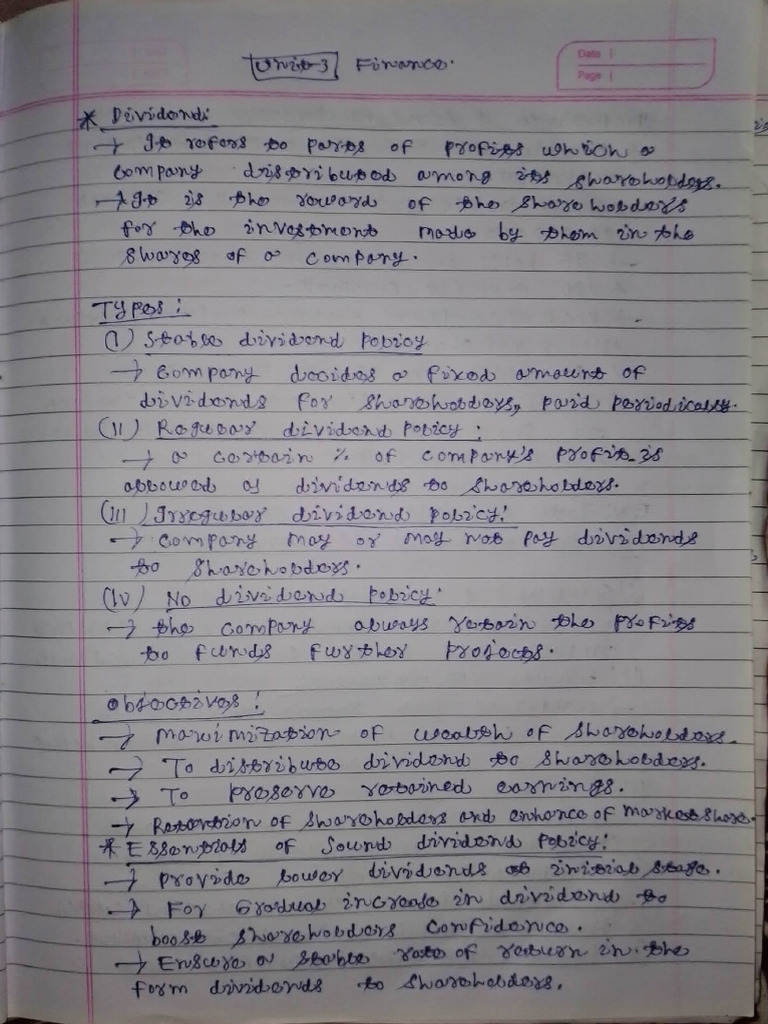 Unit-3 Finance.
Date
Page
* Dividend:
→ It refers to parts of profits which a
company distributed among its shareholders.
→ It is the reward of the shareholders
for the investment made by them in the
shares of a company.
Types:
(I) Stable dividend policy
→ Company decides a fixed amount of
dividends for shareholders, paid periodically.
(II) Regular dividend policy:
→ a certain % of company's profit is
allowed as dividends to shareholders.
(III) Irregular dividend policy:
→ company may or may not pay dividends
to shareholders.
(IV) No dividend policy.
→ the company always retain the profits
to funds further projects.
Objectives:
→ Maximization of wealth of shareholders.
→ To distribute dividend to shareholders.
→ To preserve retained earnings.
→ Retention of shareholders and enhance of market share.
* Essentials of Sound dividend Policy:
→ Provide lower dividends at initial stage.
→ For Gradual increase in dividend to
boost shareholders confidence.
→ Ensure a stable rate of return in the
form dividends to shareholders.